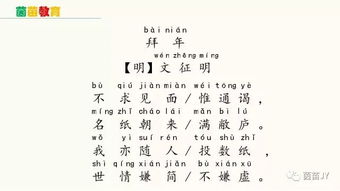 茵苗教育
bài nián
拜年
wén zhēng míng
【明】文征明
bù qiú jiàn miàn wéi tōng yè
不求见面/惟通谒，
míng zhǐ cháo lái mǎn bì lú
名纸朝来/满敝庐。
wǒ yì suí rén tóu shù zhǐ
我亦随人/投数纸，
shì qíng xián jiǎn bù xián xū
世情嫌简/不嫌虚。
茵苗JY